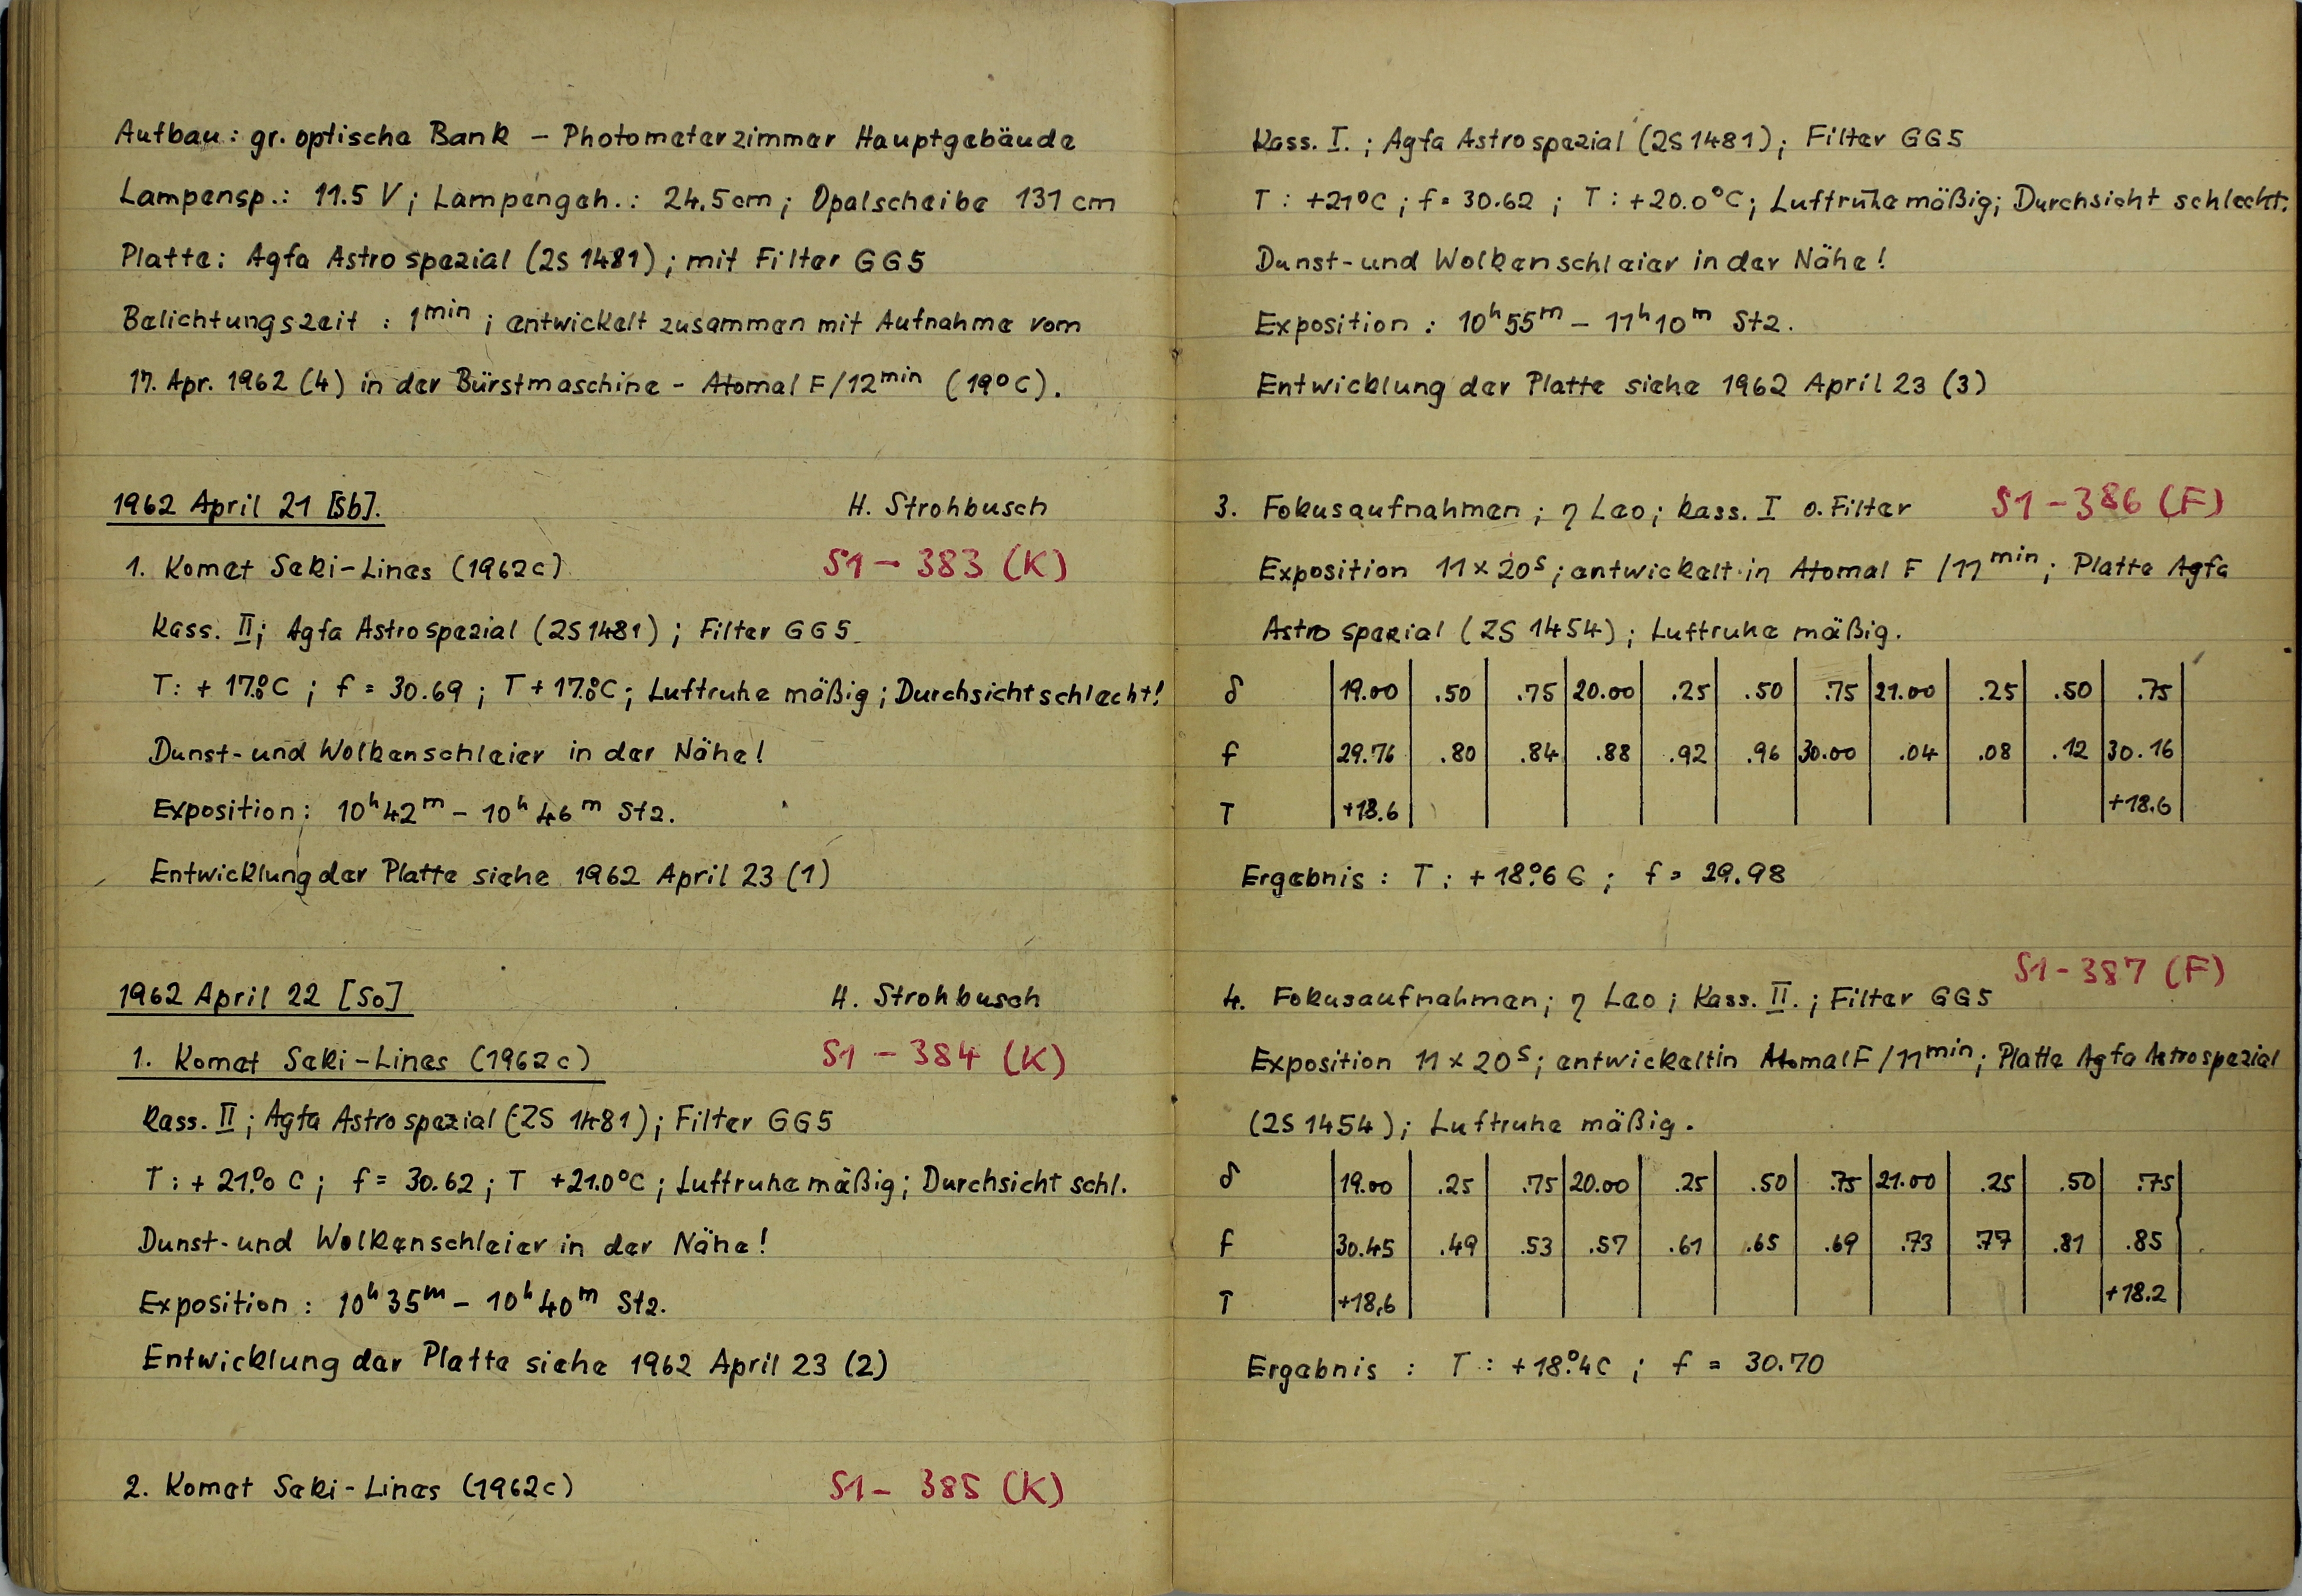 Aufbau: gr. optische Bank – Photometerzimmer Hauptgebäude
Lampensp.: 11.5 V; Lampengeh.: 24.5 cm; Opalscheibe 131 cm
Platte: Agfa Astro spezial (ZS 1481); mit Filter GG5
Belichtungszeit : 1min; entwickelt zusammen mit Aufnahme vom
17. Apr. 1962 (4) in der Bürstmaschine - Atomal F/12min (19°C).
1962 April 21 [Sb]. H. Strohbusch
1. Komet Seki-Lines (1962c) S1 – 383 (K)
Kass. II; Agfa Astro spezial (ZS 1481); Filter GG5
T: + 17.°8C ; f = 30.69 ; T + 17.°8C; Luftruhe mäßig; Durchsicht schlecht!
Dunst- und Wolkenschleier in der Nähe!
Exposition: 10h42m – 10h46m Stz.
Entwicklung der Platte siehe 1962 April 23 (1)
1962 April 22 [So] H. Strohbusch
1. Komet Seki-Lines (1962c) S1 – 384 (K)
Kass. II; Agfa Astro spezial (ZS 1481); Filter GG5
T: + 21.°0 C; f = 30.62; T +21.0°C; Luftruhe mäßig; Durchsicht schl.
Dunst- und Wolkenschleier in der Nähe!
Exposition : 10h35m – 10h40m Stz.
Entwicklung der Platte siehe 1962 April 23 (2)
2. Komet Seki-Lines (1962c) S1 – 385 (K)
Kass. I.; Agfa Astro spezial (ZS 1481); Filter GG5
T: +21°C; f = 30.62 ; T: +20.0°C; Luftruhe mäßig; Durchsicht schlecht.
Dunst- und Wolkenschleier in der Nähe!
Exposition : 10h55m – 11h10m Stz.
Entwicklung der Platte siehe 1962 April 23 (3)
3. Fokusaufnahmen; η Leo; Kass. I o. Filter S1 – 386 (F)
Exposition 11 x 20s; entwickelt in Atomal F /11min; Platte Agfa
Astro spezial (ZS 1454); Luftruhe mäßig.
δ 19.00 .50 .75 20.00 .25 .50 .75 21.00 .25 .50 .75
f 29.76 .80 .84 .88 .92 .96 30.00 .04 .08 .12 30.16
T +18.6 +18.6
Ergebnis : T: + 18.°6 C ; f = 29.98
S1 - 387 (F)
4. Fokusaufnahmen; η Leo; Kass. II.; Filter GG5
Exposition 11 x 20s; entwickelt in Atomal F /11min; Platte Agfa Astro spezial
(ZS 1454); Luftruhe mäßig.
δ 19.00 .25 .75 20.00 .25 .50 .75 21.00 .25 .50 .75
f 30.45 .49 .53 .57 .61 .65 .69 .73 .77 .81 .85
T +18,6 +18.2
Ergebnis : T: +18.°4C ; f = 30.70